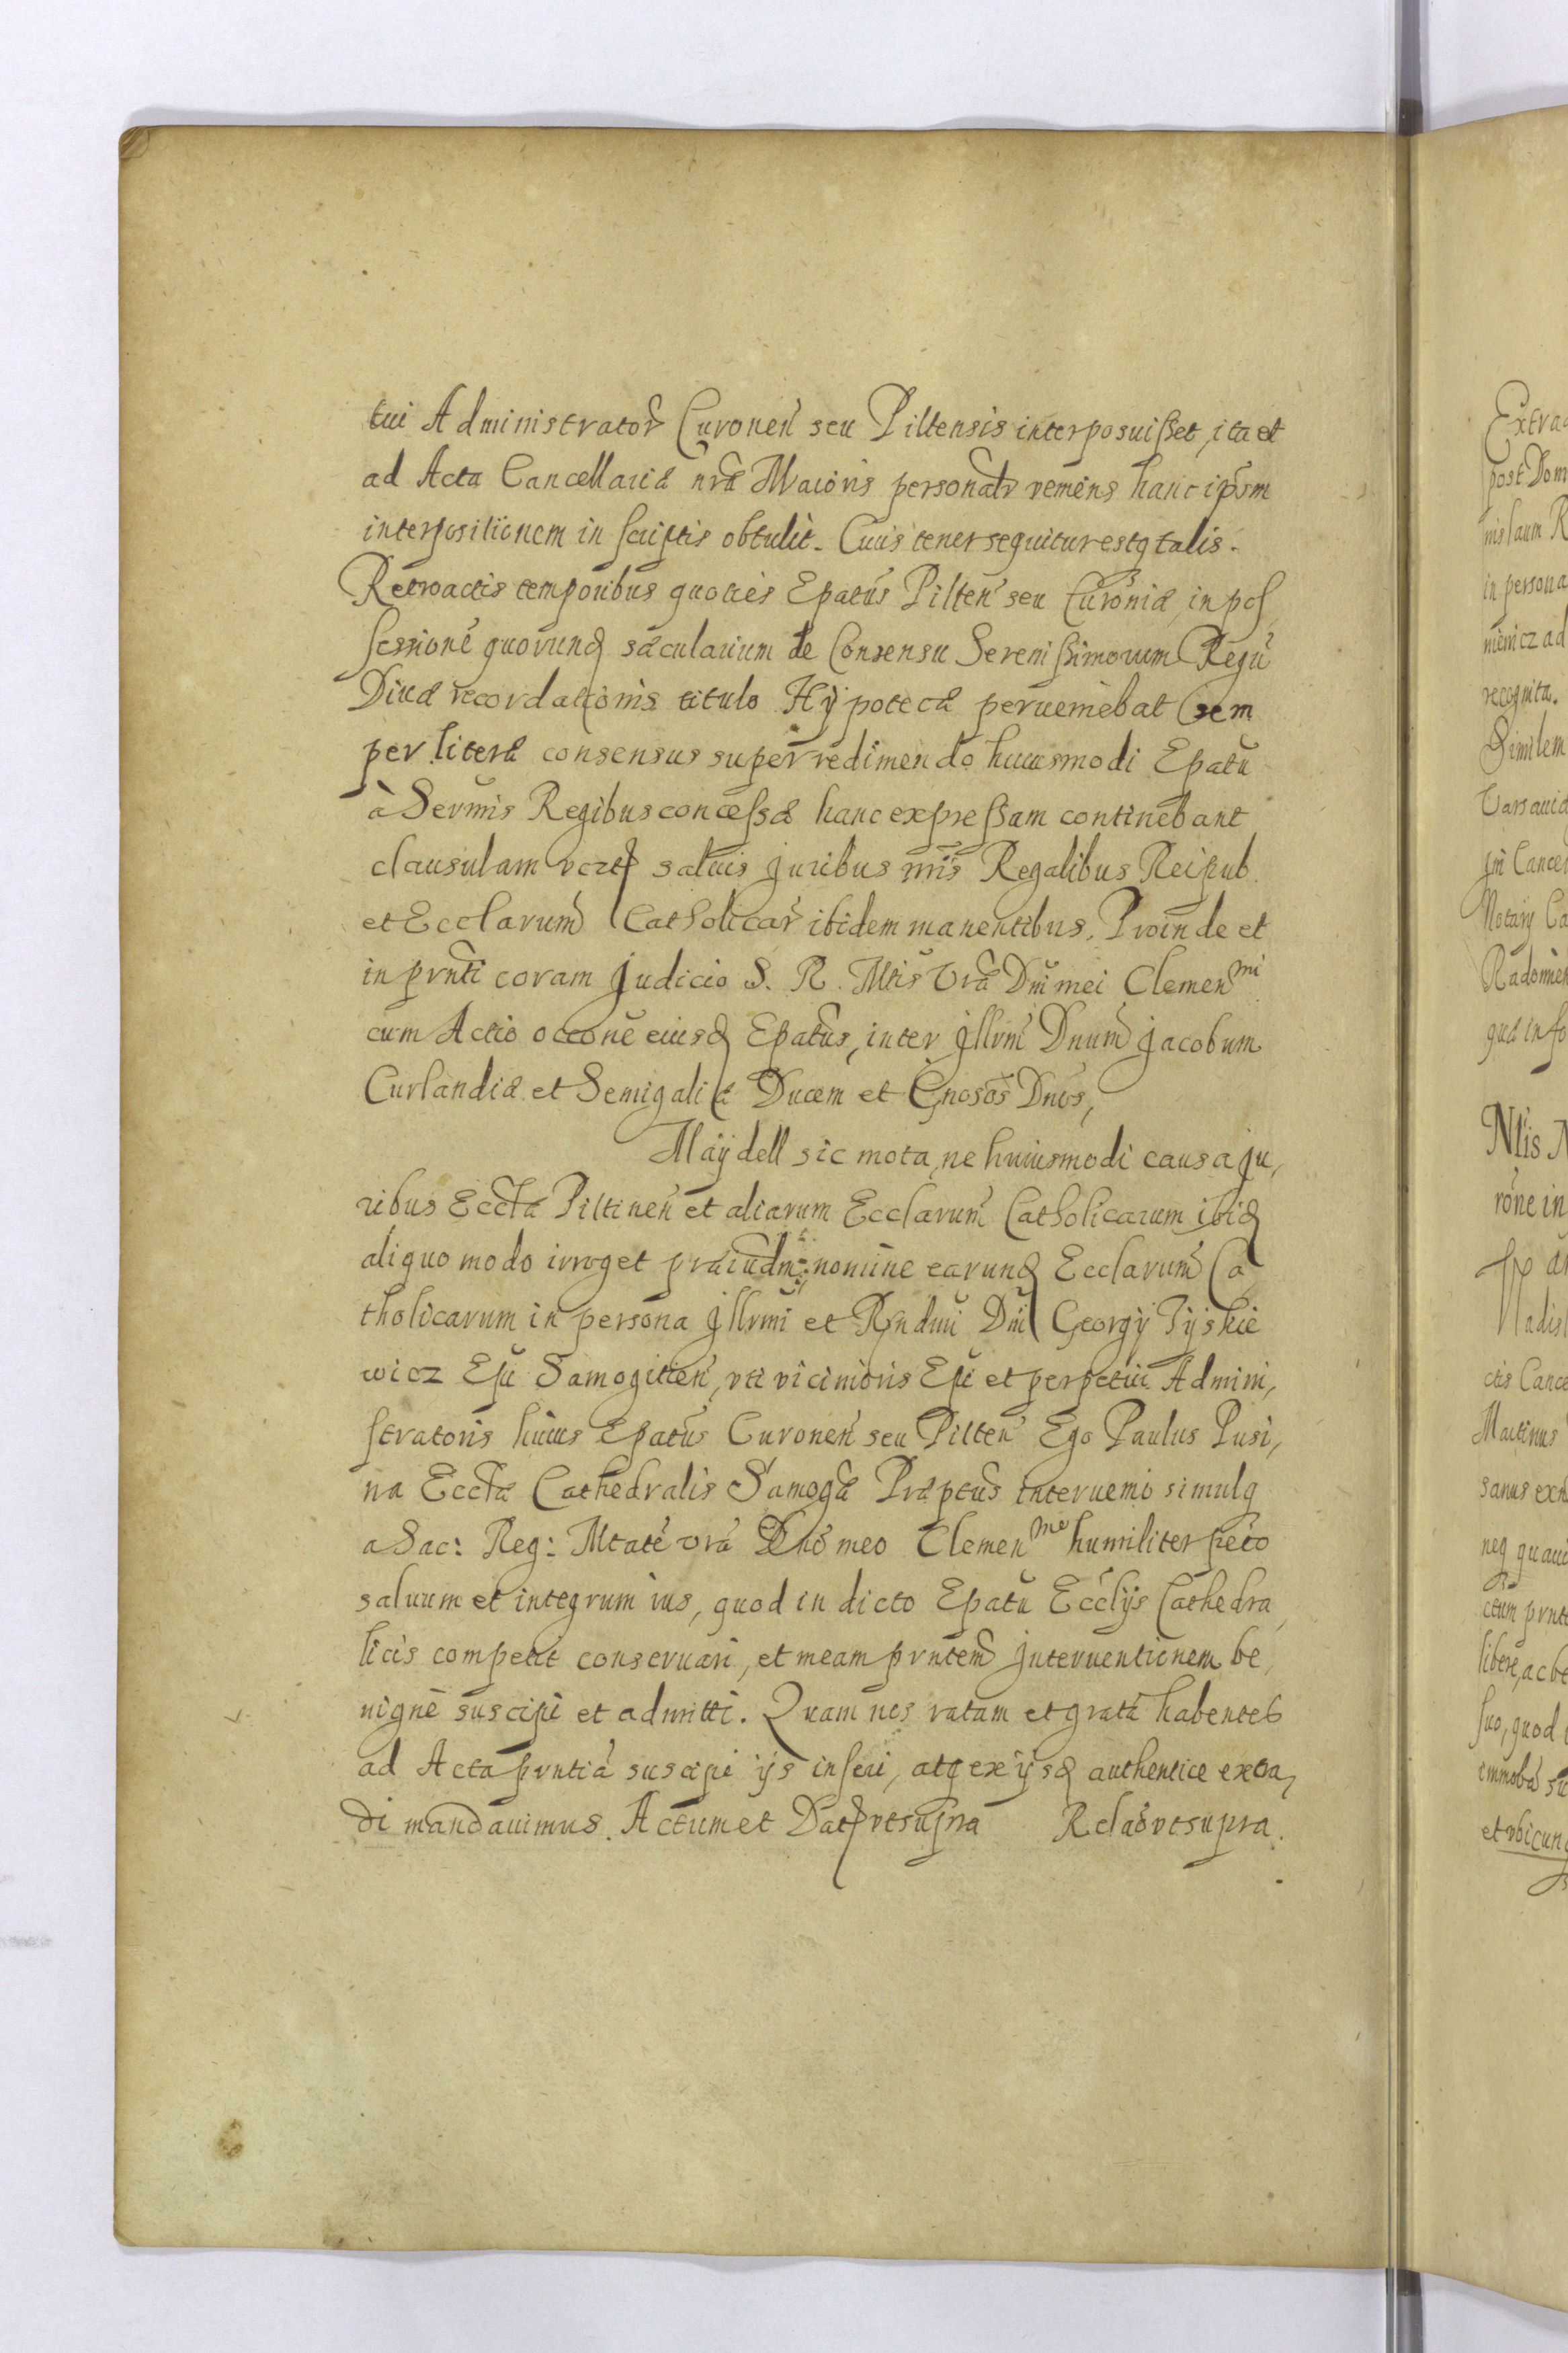 tui Administrator̃ Curonen̄ seu Piltensis interposuisset, ita et
ad Acta Cancellariæ nr̃æ Maioris personalr̃ veniens hanc ip̃sm
interpositionem in scriptis obtulit. Cuius tenor sequitur estq talis.
Retroactis temporibus quoties Ep̃atus Pilten̄ seu Curoniæ, in pos,
sessionē quorund sæcularium de Consensu Serenissimorum Regū
Divæ recordationis titulo Hÿpotecæ perveniebat Sem
per literæ consensus super redimendo huiusmodi Ep̃atu
à Serm̃is Regibus concessæ hanc expressam continebant
clausulam vzt salvis juribus nr̃is Regalibus Reipub.
et Eccl̃arum Catholicar̃ ibidem manentibus. Proinde et
in prñti coram Judicio S. R. Mtis Vr̃æ Dñi mei Clemen mi
cum Actio occõne eiusd Ep̃atus, inter Jllrm̄ Dñum Jacobum
Curlandiæ et Semigaliæ Ducem et Gñosos Dños,
Maÿdell sic mota, ne huiusmodi causa ju,
ribus Eccl̃æ Piltinen̄ et aliarum Eccl̃arum Catholicarum ibid
aliquo modo irroget præiudm̃: nomine earund Eccl̃arum Ca
tholicarum in persona Jllrmi et Rñdmi Dñi Georgÿ Tÿskie
wicz Ep̃i Samogitien̄, vti vicinioris Ep̃i et perpetui Admini,
stratoris huius Ep̃atus Curonen̄ seu Pilten̄ Ego Paulus Pusi,
na Eccl̃æ Cathedralis Samogæ Præp̃tus intervenio simulq
a Sac: Reg: Mtate vr̃a Dño meo Clemen mo humiliter peto
salvum et integrum ius, quod in dicto Ep̃atu Eccl̃ijs Cathedra
licis competit conservari, et meam prñtem Jnterventionem be,
nignè suscipi et admitti. Quam nos ratam et gratā habentes
ad Acta prñtia suscipi ijs inseri, atq ex ijsd authentice extra,
di mandavimus. Actum et Dat vt supra Relao vt supra.